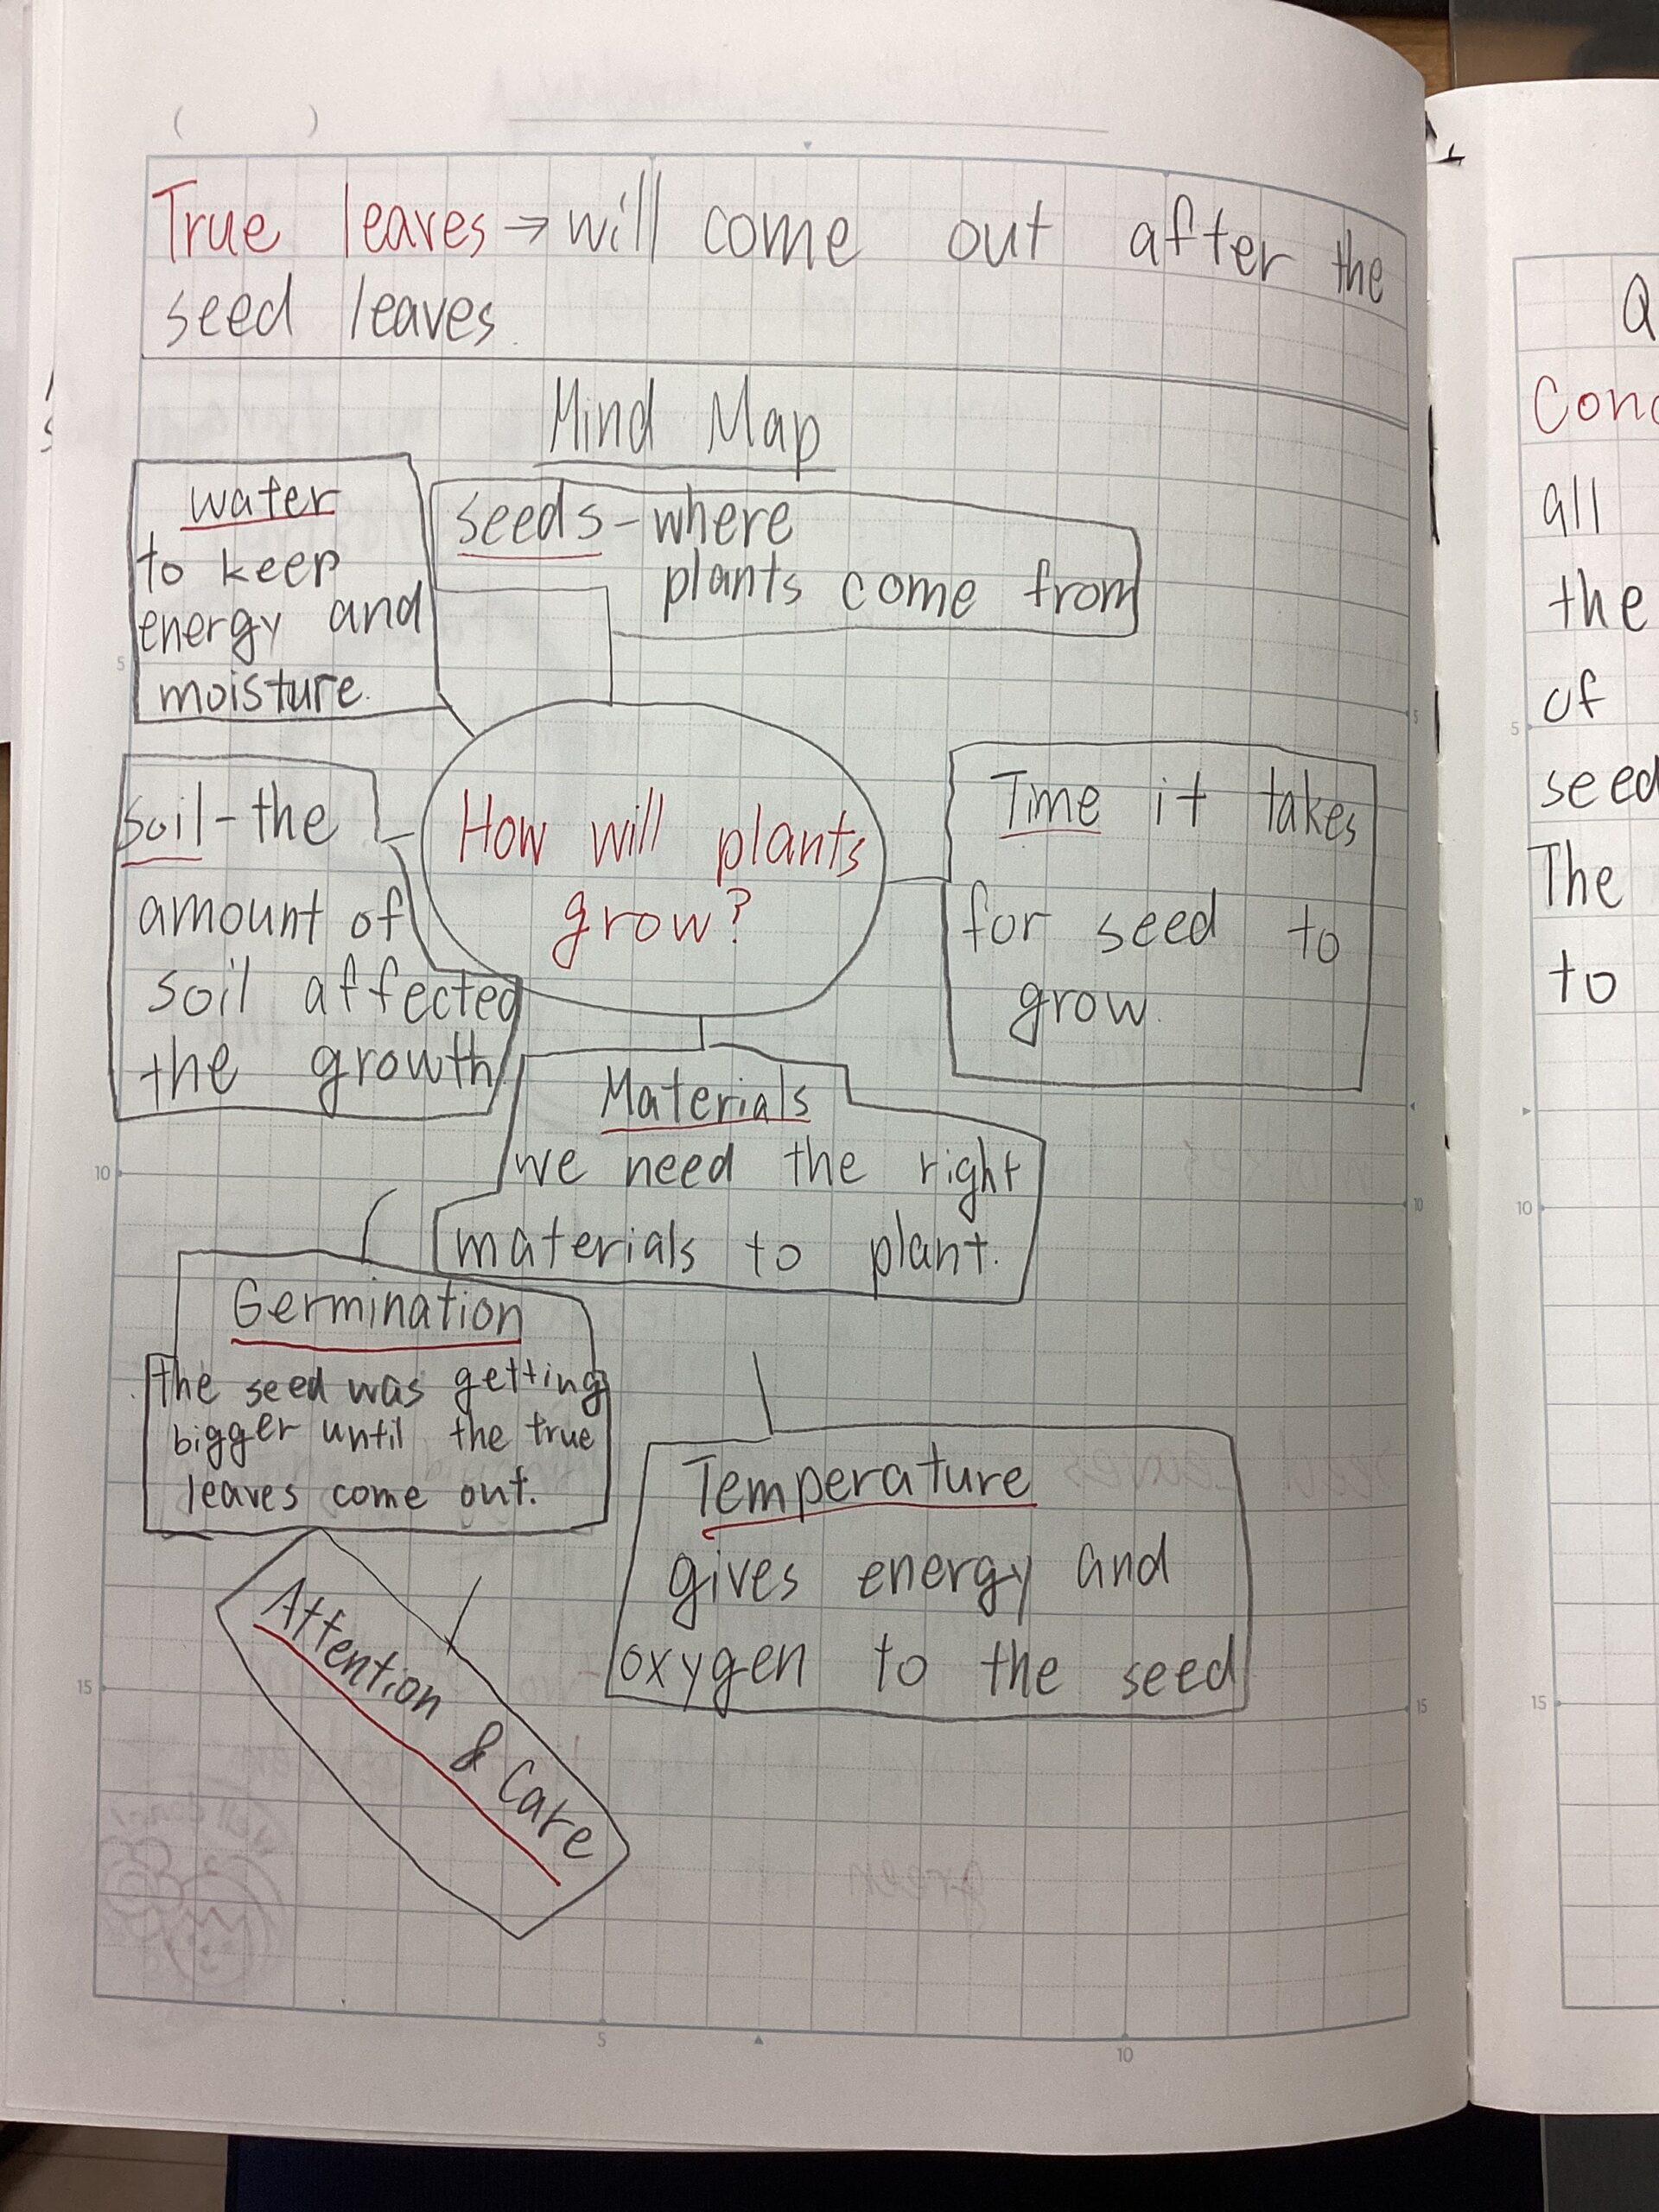 ( )
True leaves → will come out after the
seed leaves
Mind Map
water
to keep
energy and
moisture.
seeds - where
plants come from
soil - the
amount of
soil affected
the growth
How will plants
grow?
Time it takes
for seed to
grow.
Materials
we need the right
materials to plant.
Germination
the seed was getting
bigger until the true
leaves come out.
Temperature
gives energy and
oxygen to the seed
Attention & Care
5
10
15
5
10
15
5
10
Q
Conc
all
the
of
seed
The
to
5
10
15